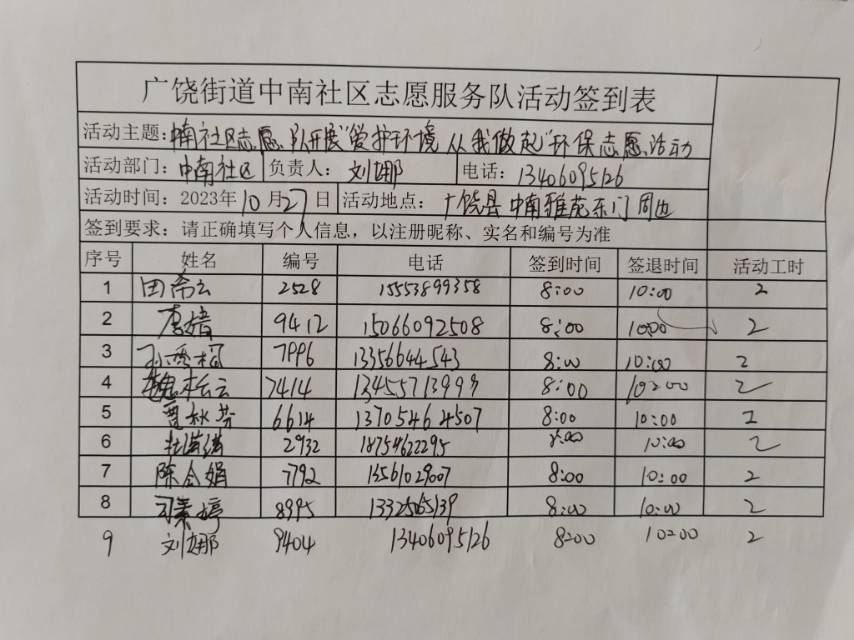 广饶街道中南社区志愿服务队活动签到表
活动主题：中南社区志愿队开展"爱护环境 从我做起"环保志愿活动
活动部门：中南社区 负责人：刘娜 电话：13406095126
活动时间：2023年10月27日 活动地点：广饶县中南雅苑东门周边
签到要求：请正确填写个人信息，以注册昵称、实名和编号为准
序号 姓名 编号 电话 签到时间 签退时间 活动工时
1 田希云 2528 15553899358 8:00 10:00 2
2 李婧 9412 15066092508 8:00 10:00 2
3 7996 13356644543 8:00 10:00 2
4 7414 13455713999 8:00 10:00 2
5 贾秋芬 6614 13705464507 8:00 10:00 2
6 2932 18754622295 8:00 10:00 2
7 陈令娟 7792 13561029007 8:00 10:00 2
8 8995 8:00 10:00 2
9 刘娜 9404 13406095126 8:00 10:00 2